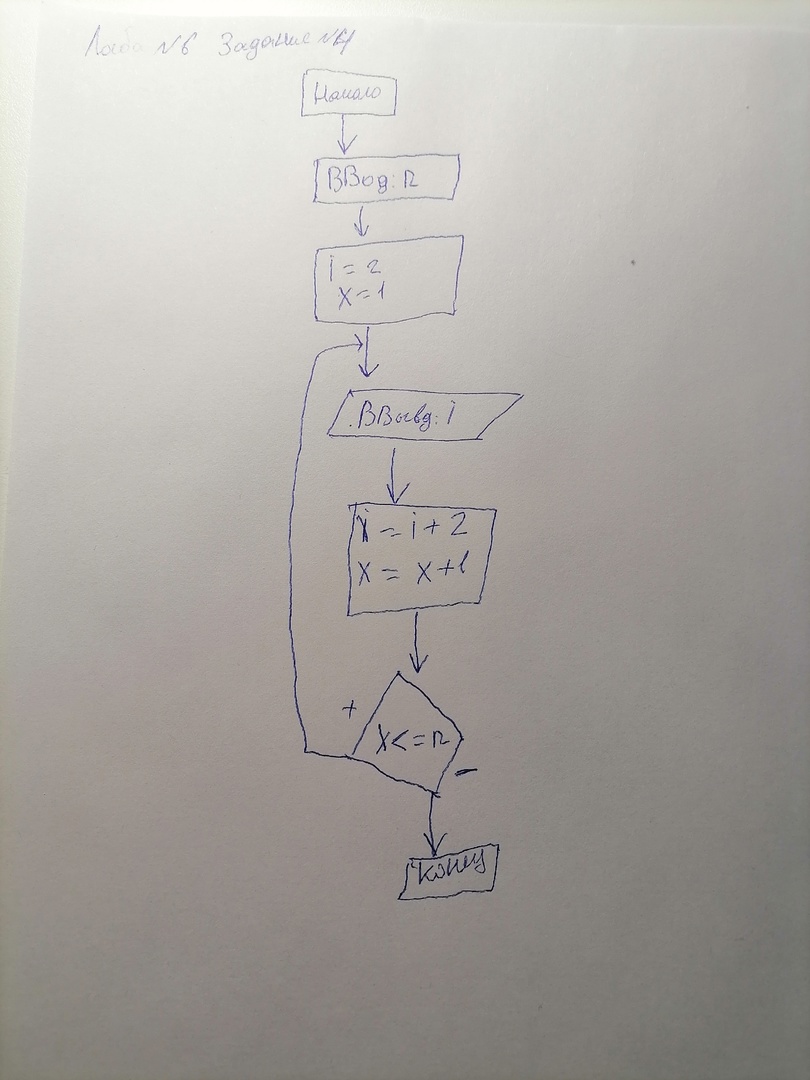 Лаба №6 Задание №4
Начало
ВВод: n
i = 2
x = 1
ВВывд: i
i = i + 2
x = x + 1
+
x <= n
−
Конец